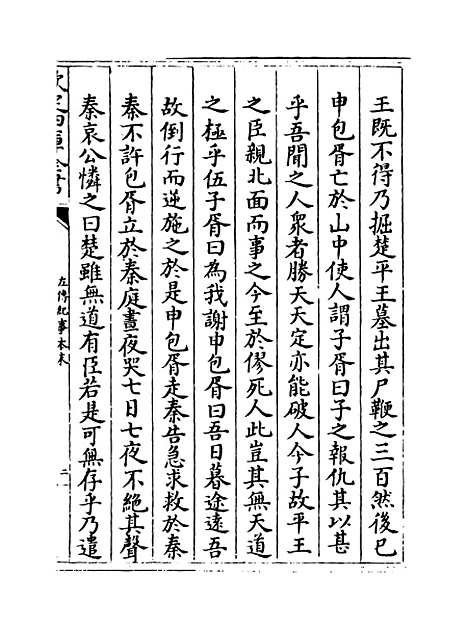 王既不得乃掘楚平王墓出其尸鞭之三百然後已
申包胥亡於山中使人謂子胥曰子之報仇其以甚
乎吾聞之人衆者勝天天定亦能破人今子故平王
之臣親北面而事之今至於僇死人此豈其無天道
之極乎伍子胥曰為我謝申包胥曰吾日暮途遠吾
故倒行而逆施之於是申包胥走秦告急求救於秦
秦不許包胥立於秦庭晝夜哭七日七夜不絶其聲
秦哀公憐之曰楚雖無道有臣若是可無存乎乃遣
欽定四庫全書
左傳紀事本末